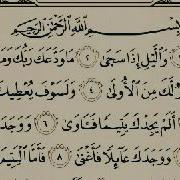 بِسْمِ ٱللَّهِ ٱلرَّحْمَٰنِ ٱلرَّحِيمِ
وَٱلَّيْلِ إِذَا سَجَىٰ ٢ مَا وَدَّعَكَ رَبُّكَ وَمَا
لَّكَ مِنَ ٱلْأُولَىٰ ٤ وَلَسَوْفَ يُعْطِيكَ
أَلَمْ يَجِدْكَ يَتِيمًا فَـَٔاوَىٰ ٦ وَوَجَدَ
وَوَجَدَكَ عَآئِلًا فَأَغْنَىٰ ٨ فَأَمَّا ٱلْيَتِيمَ